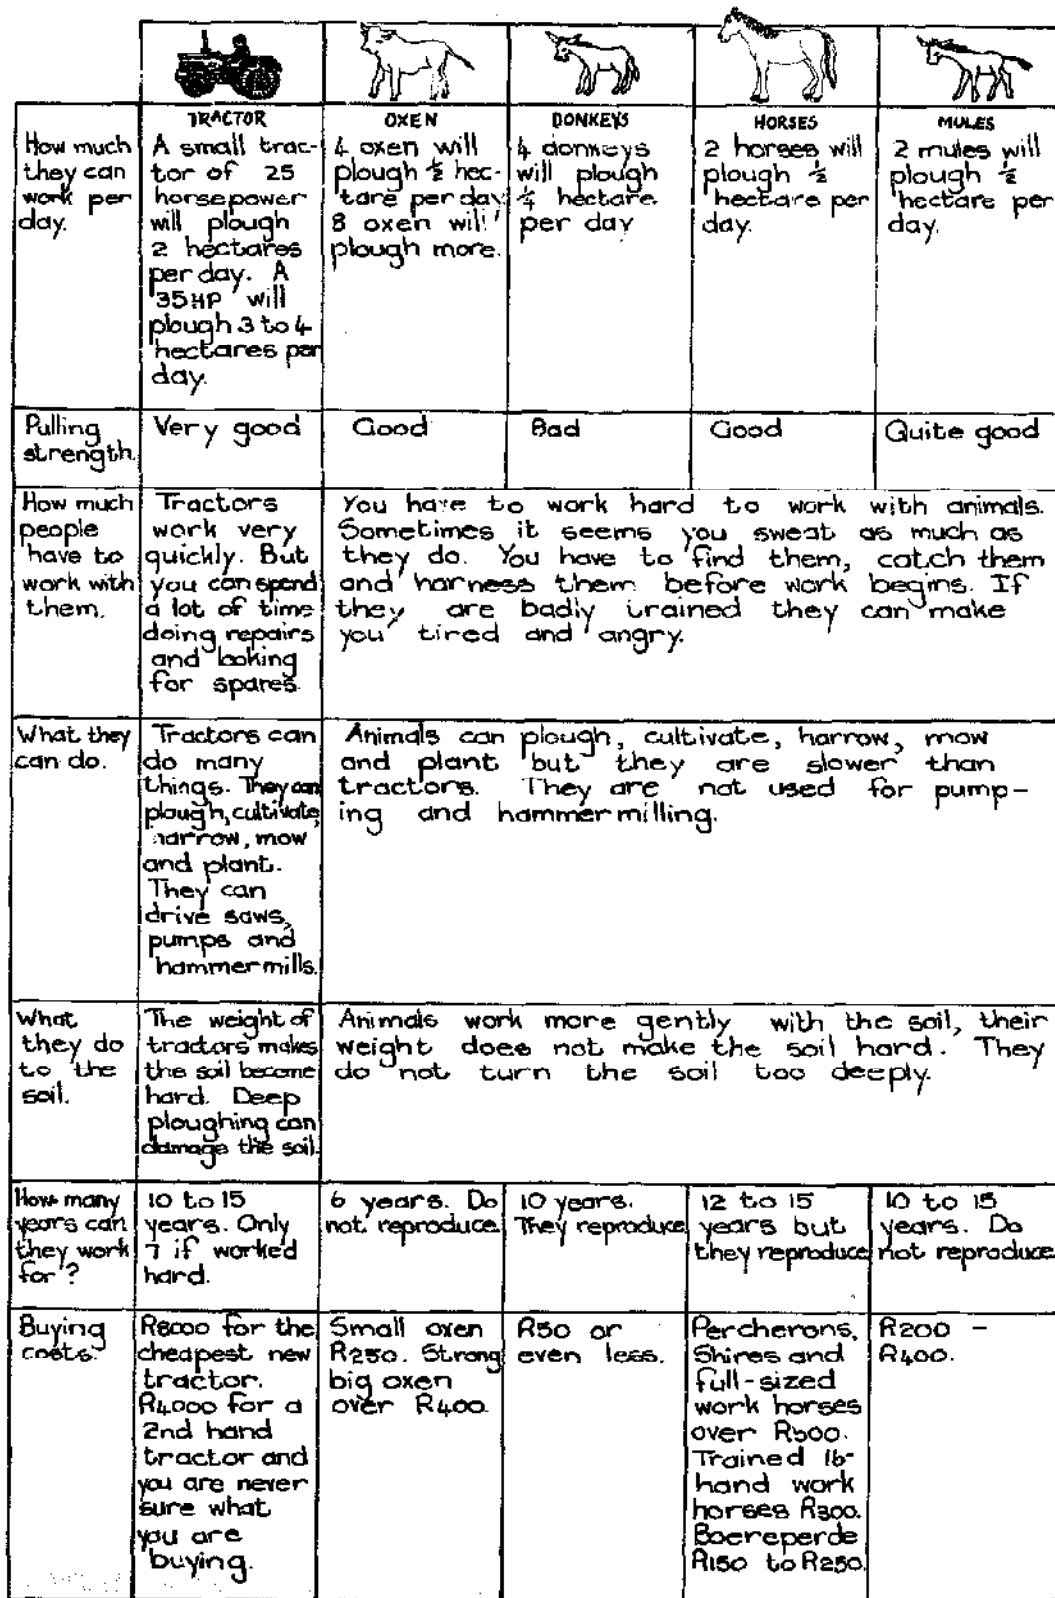 TRACTOR
OXEN
DONKEYS
HORSES
MULES
How much
they can
work per
day.
A small trac-
tor of 25
horsepower
will plough
2 hectares
per day. A
35HP will
plough 3 to 4
hectares per
day.
4 oxen will
plough ½ hec-
tare per day
8 oxen will
plough more.
4 donkeys
will plough
¼ hectare
per day
2 horses will
plough ½
hectare per
day.
2 mules will
plough ½
hectare per
day.
Pulling
strength.
Very good
Good
Bad
Good
Quite good
How much
people
have to
work with
them.
Tractors
work very
quickly. But
you can spend
a lot of time
doing repairs
and looking
for spares.
You have to work hard to work with animals.
Sometimes it seems you sweat as much as
they do. You have to find them, catch them
and harness them before work begins. If
they are badly trained they can make
you tired and angry.
What they
can do.
Tractors can
do many
things. They can
plough, cultivate,
harrow, mow
and plant.
They can
drive saws,
pumps and
hammermills.
Animals can plough, cultivate, harrow, mow
and plant but they are slower than
tractors. They are not used for pump-
ing and hammermilling.
What
they do
to the
soil.
The weight of
tractors makes
the soil become
hard. Deep
ploughing can
damage the soil.
Animals work more gently with the soil, their
weight does not make the soil hard. They
do not turn the soil too deeply.
How many
years can
they work
for?
10 to 15
years. Only
7 if worked
hard.
6 years. Do
not reproduce
10 years.
They reproduce
12 to 15
years but
they reproduce
10 to 15
years. Do
not reproduce
Buying
costs.
R8000 for the
cheapest new
tractor.
R4000 for a
2nd hand
tractor and
you are never
sure what
you are
buying.
Small oxen
R250. Strong
big oxen
over R400.
R50 or
even less.
Percherons,
Shires and
full-sized
work horses
over R500.
Trained 16-
hand work
horses R300.
Boereperde
R150 to R250.
R200 -
R400.